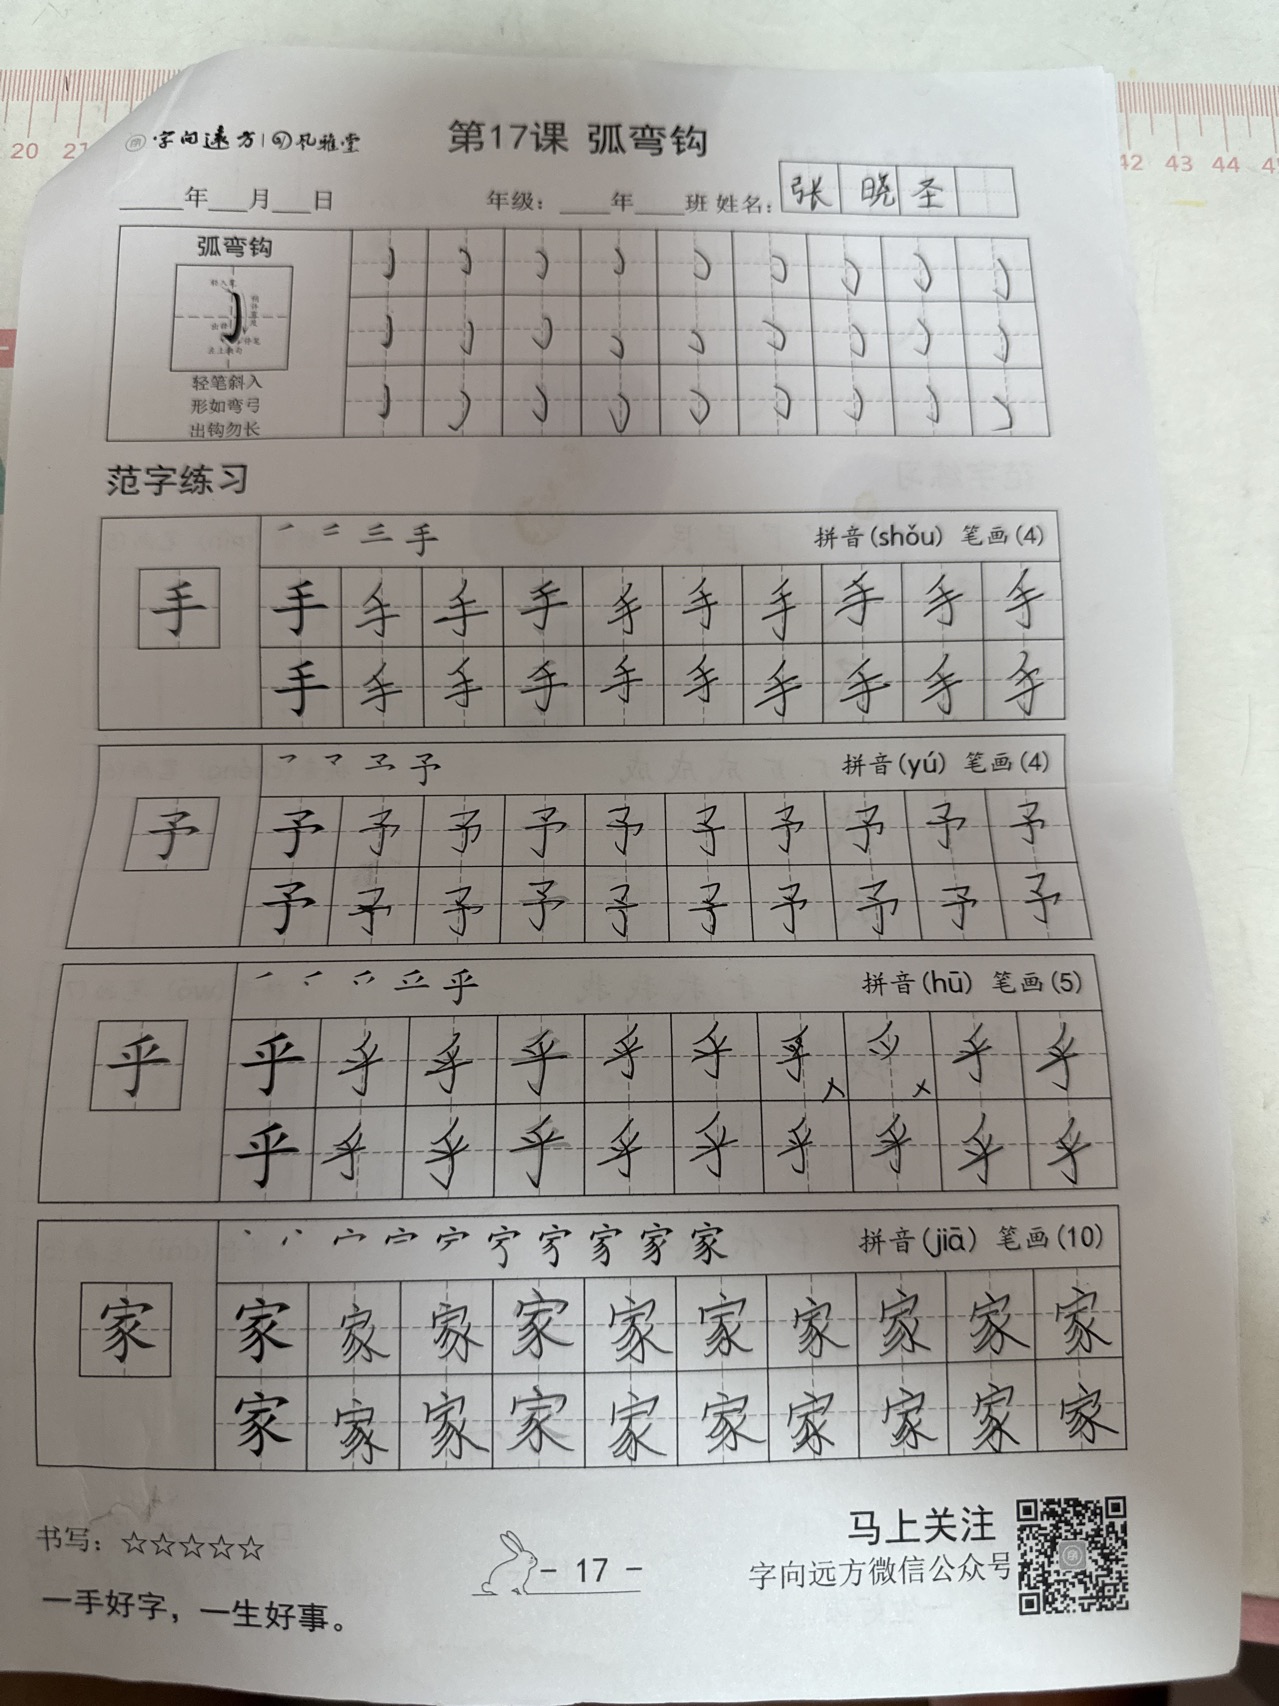 字向遠方 风雅堂
第17课 弧弯钩
____年___月___日 年级：____年____班 姓名：张晓圣
弧弯钩
轻笔斜入
形如弯弓
出钩勿长
范字练习
手 拼音(shǒu) 笔画(4)
手 手 手 手 手 手 手 手 手 手 手
手 手 手 手 手 手 手 手 手 手
予 拼音(yú) 笔画(4)
予 予 予 予 予 予 予 予 予 予 予
予 予 予 予 予 予 予 予 予 予
乎 拼音(hū) 笔画(5)
乎 乎 乎 乎 乎 乎 乎 乎 乎 乎
乎 乎 乎 乎 乎 乎 乎 乎 乎 乎
家 拼音(jiā) 笔画(10)
家 家 家 家 家 家 家 家 家 家 家
家 家 家 家 家 家 家 家 家 家
书写：☆☆☆☆☆
一手好字，一生好事。
- 17 -
马上关注
字向远方微信公众号